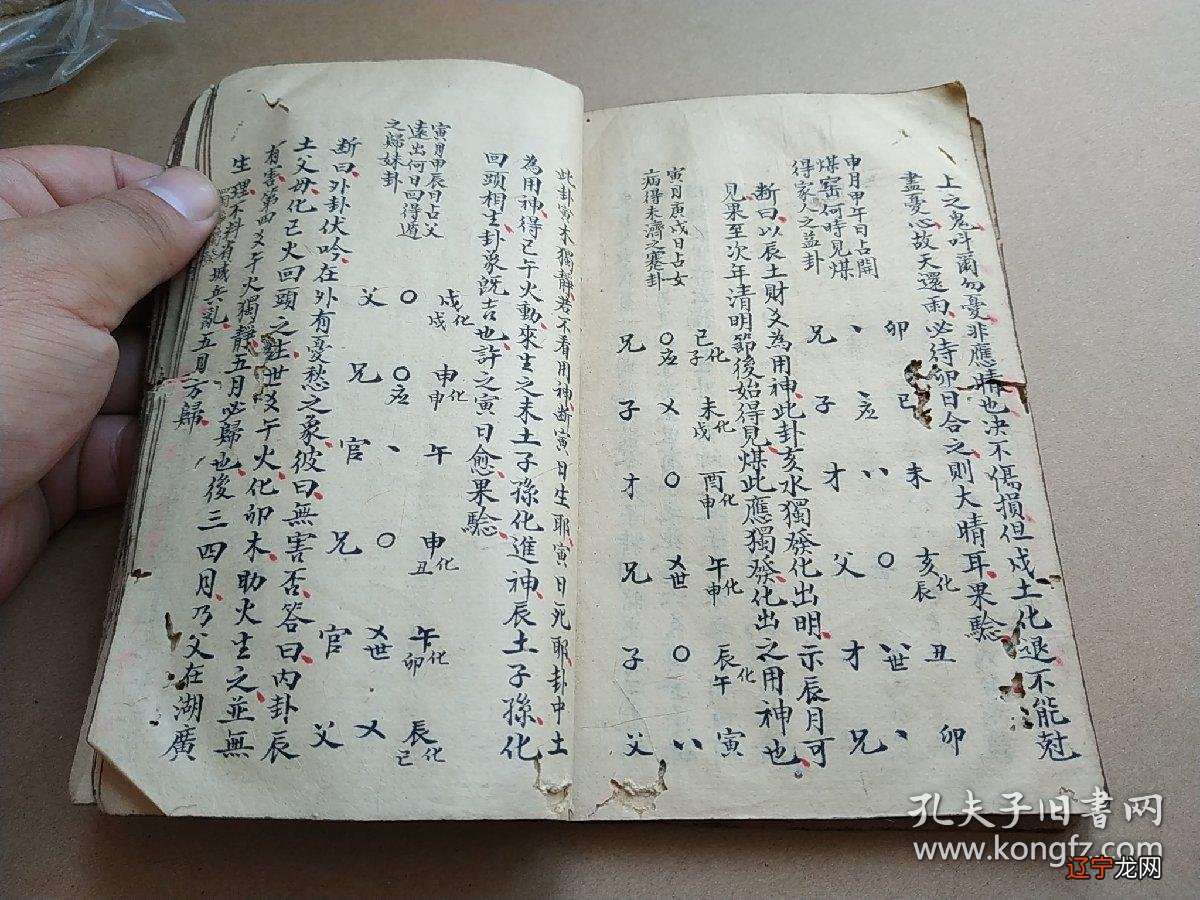 上之鬼呼爾勿憂非應晴也决不傷損但戍土化退不能尅
盡憂心故天還雨必待卯日合之則大晴耳果騐
申月甲午日占開
煤窑何時見煤
得家人之益卦
卯 巳 未 亥化辰 丑 卯
丶 丶应 〃 〇 〃世 丶
兄 子 才 父 才 兄
断曰以辰土財爻為用神此卦亥水獨發化出明示辰月可
見果至次年清明節後始得見煤此應獨發化出之用神也
寅月庚戍日占女
病得未濟之蹇卦
巳化子 未化戍 酉化申 午化申 辰化午 寅
〇应 乂 〇 乂世 〇 〃
兄 子 才 兄 子 父
此卦寅木獨静若不看用神断寅日生耶寅日死耶卦中土
為用神得巳午火動來生之未土子孫化進神辰土子孫化
回頭相生卦象既吉也許之寅日愈果騐
寅月甲辰日占父
遠出何日回得遁
之歸妹卦
戍化戍 申化申 午 申化丑 午化卯 辰化巳
〇 〇应 丶 〇 乂世 乂
父 兄 官 兄 官 父
断曰外卦伏吟在外有憂愁之象彼曰無害否答曰内卦辰
土父母化巳火回頭之生世爻午火化卯木助火生之並無
有害第四爻午火獨静五月必歸也後三四月乃父在湖廣
生理不料有城兵亂五月方歸
孔夫子旧书网
www.kongfz.com
辽宁龙网